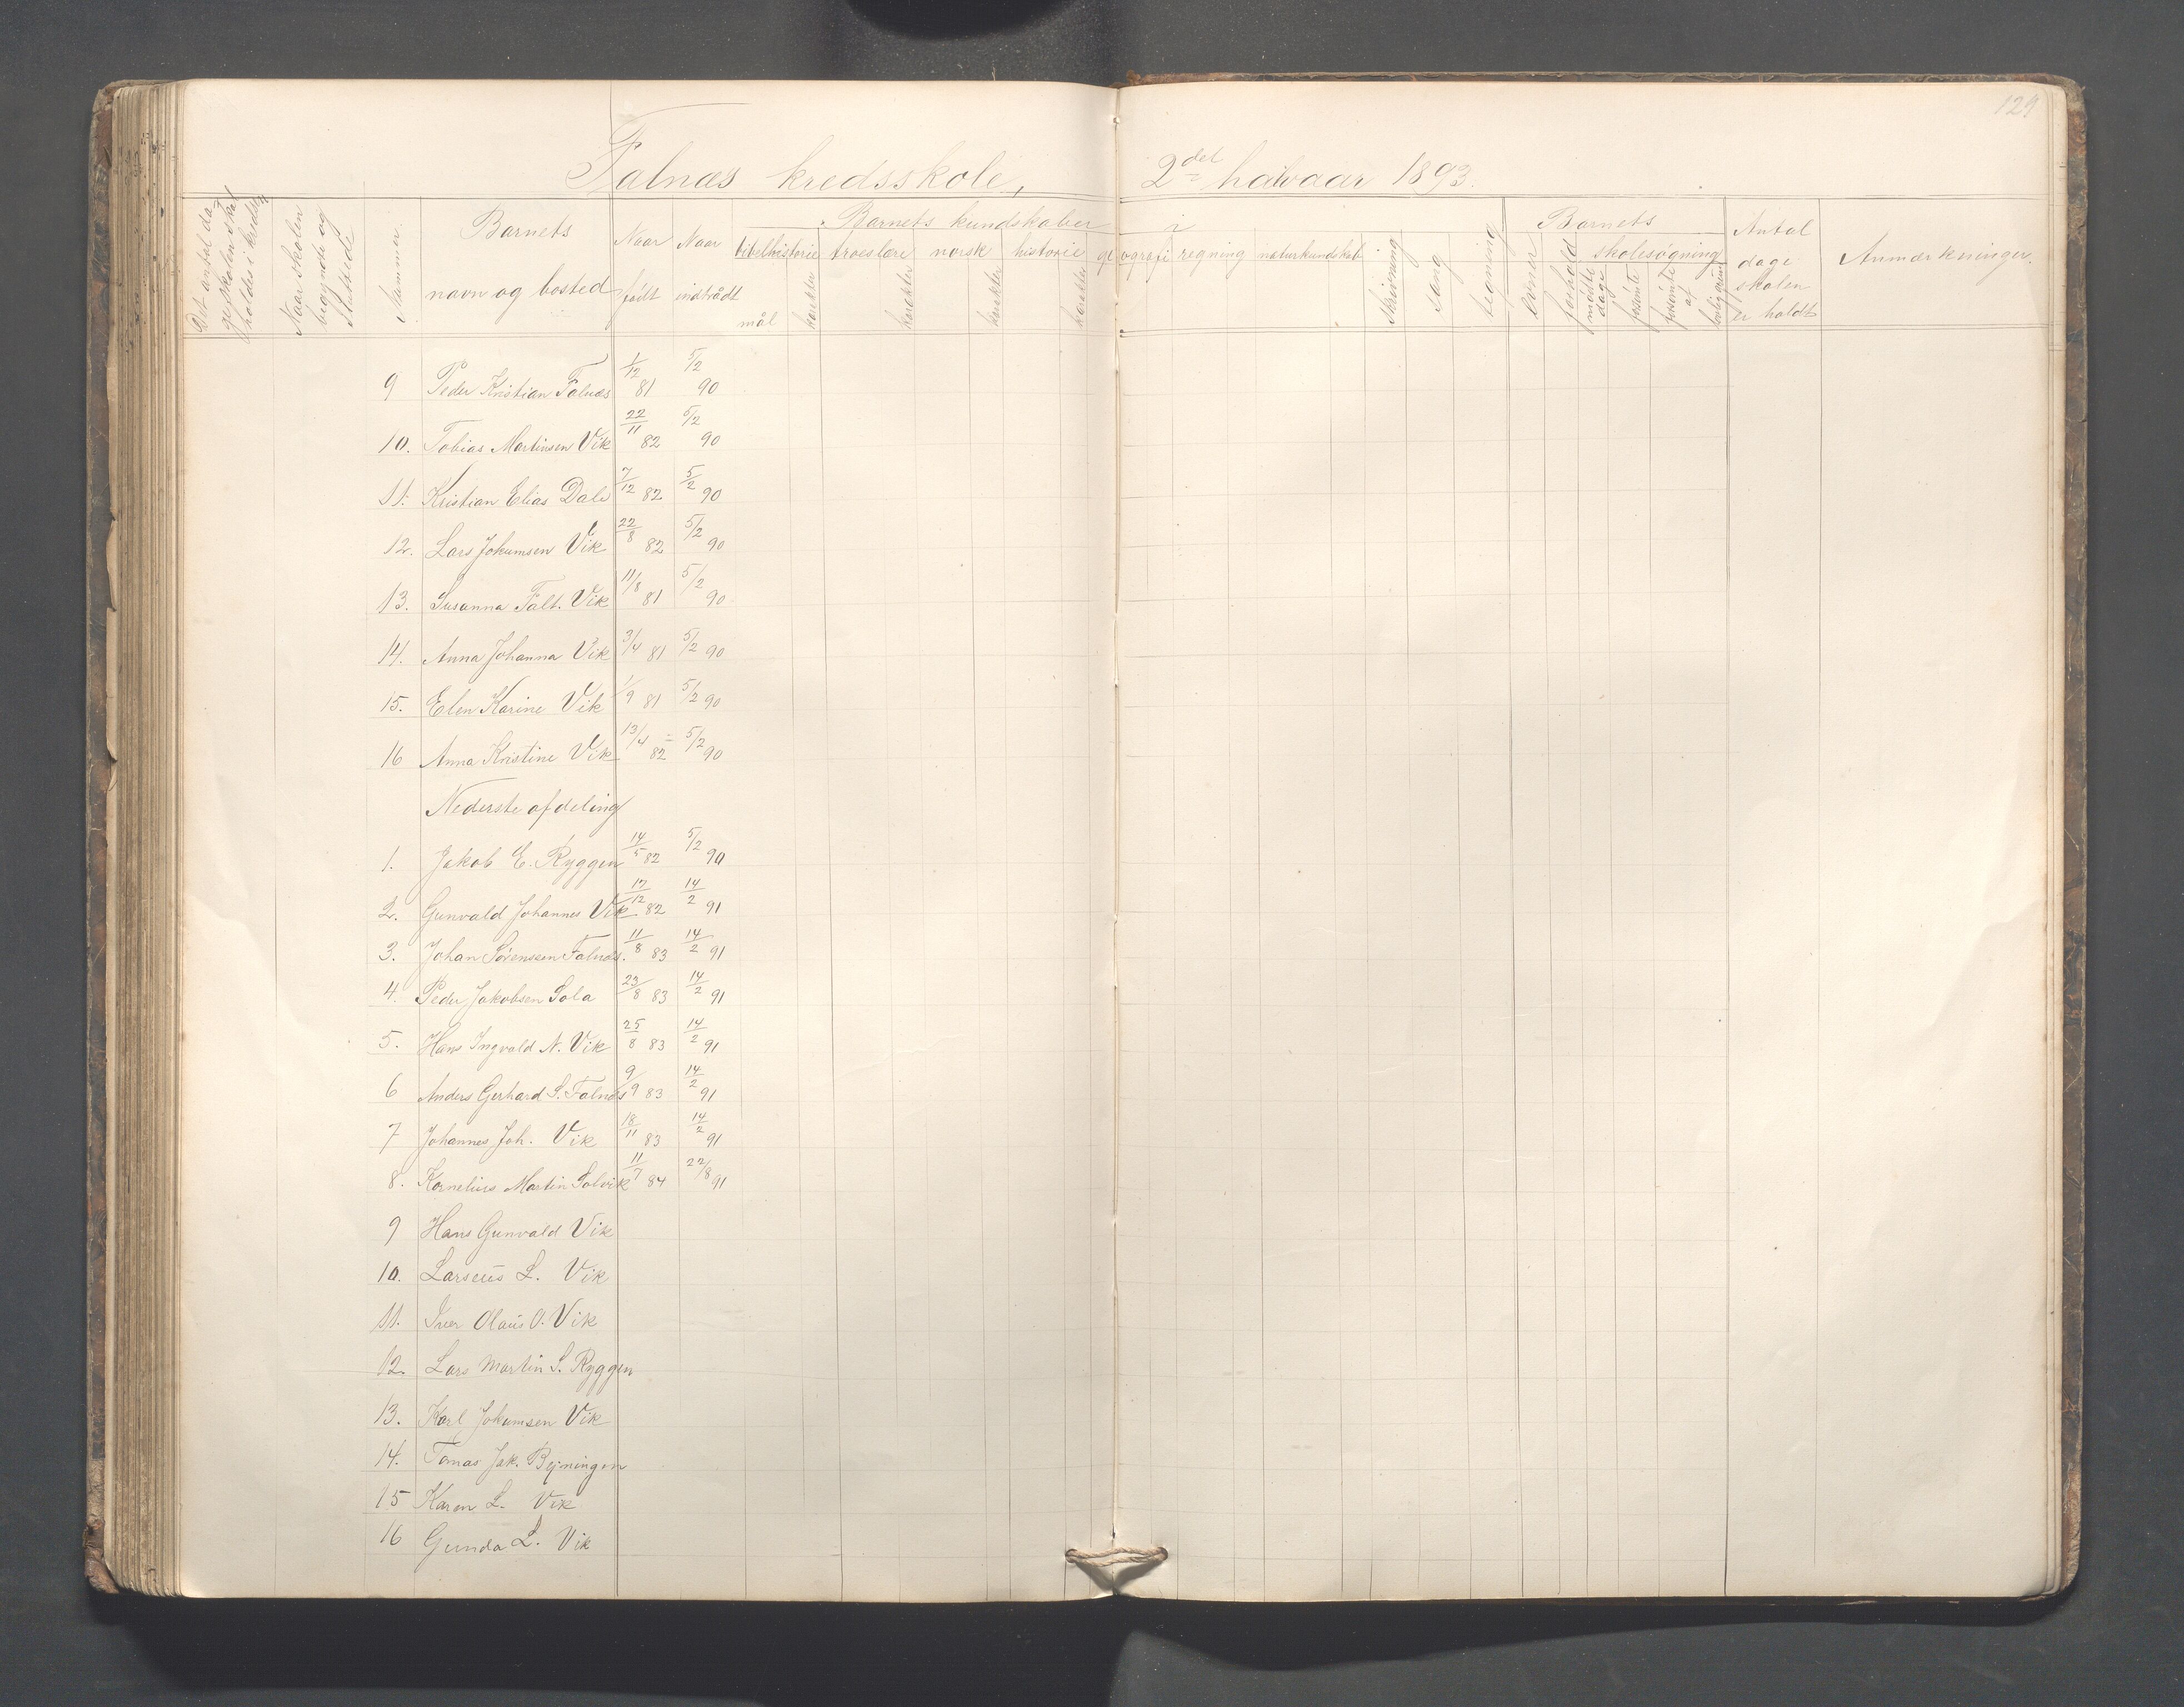 129
Falnæs kredsskole, 2det halvaar 1893.
Det antal da-
ge skolen skal
holdes i kredsen
Naar skolen
begynde og
sluttede
Nummer.
Barnets
navn og bosted
Naar
født
Naar
indtrådt
Barnets kundskaber i
bibelhistorie troeslære norsk historie geografi regning naturkundskab
mål
karakter
karakter
karakter
karakter
skrivning
sang
tegning
Barnets
evner
forhold
skolesøgning
mødte
dage
forsømte
forsømte
af
lovlig grund
Antal
dage
skolen
er holdt
Anmærkninger.
9 Peder Kristian Falnæs 1/12 81 5/2 90
10. Tobias Martinsen Vik 22/11 82 5/2 90
11. Kristian Elias Dale 7/12 82 5/2 90
12. Lars Jokumsen Vik 22/8 82 5/2 90
13. Susanna Falt. Vik 11/8 81 5/2 90
14. Anna Johanna Vik 3/4 81 5/2 90
15. Elen Karine Vik 1/9 81 5/2 90
16 Anna Kristine Vik 13/4 82 5/2 90
Nederste afdeling
1. Jakob E. Ryggen 14/5 82 5/2 90
2. Gunvald Johannes Vik 17/12 82 14/2 91
3. Johan Sørensen Falnæs. 11/8 83 14/2 91
4. Peder Jakobsen Sola 23/8 83 14/2 91
5. Hans Ingvald N. Vik 25/8 83 14/2 91
6 Anders Gerhard S. Falnæs 9/9 83 14/2 91
7 Johannes Joh. Vik 18/11 83 14/2 91
8. Kornelius Martin Solvik 11/7 84 22/8 91
9 Hans Gunvald Vik
10. Larseus L. Vik
11. Iver Olaus O. Vik
12. Lars Martin S. Ryggen
13. Karl Jokumsen Vik
14. Tomas Jak. Bejningen
15 Karen L. Vik
16 Gunda L. Vik